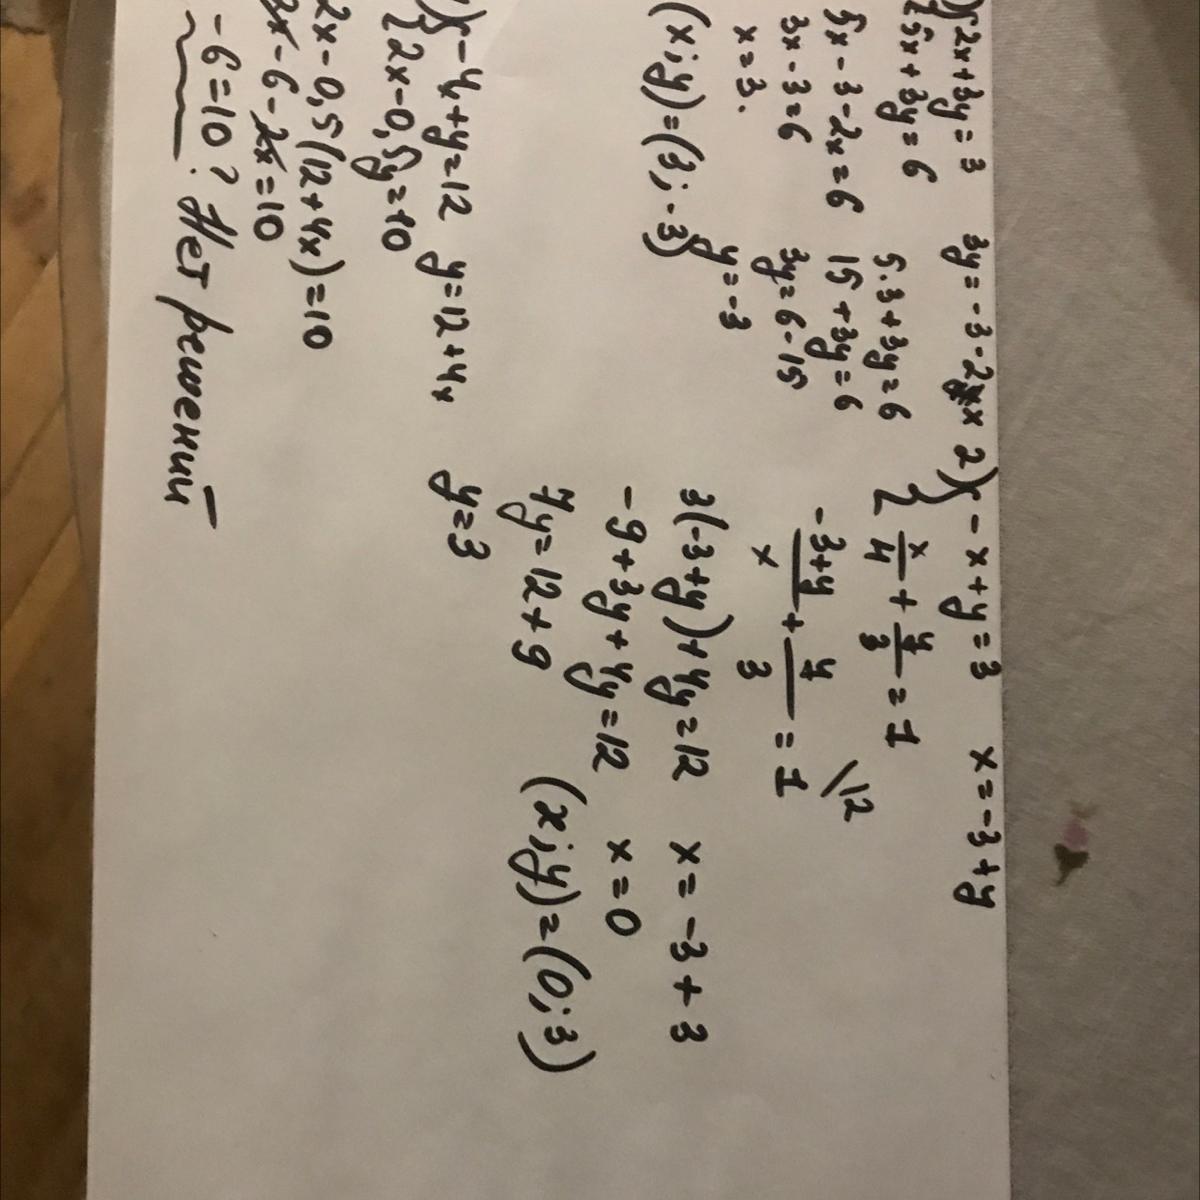 ) { 2x+3y=3
5x+3y=6
3y=-3-2x
5x-3-2x=6
3x-3=6
x=3.
5·3+3y=6
15+3y=6
3y=6-15
y=-3
(x;y)=(3;-3)
2) { -x+y=3
x/4 + y/3 = 1
x=-3+y
(-3+y)/x + y/3 = 1 \12
3(-3+y)+4y=12
-9+3y+4y=12
7y=12+9
y=3
x=-3+3
x=0
(x;y)=(0;3)
) { -4x+y=12
2x-0,5y=10
y=12+4x
2x-0,5(12+4x)=10
2x-6-2x=10
-6=10? Нет решений